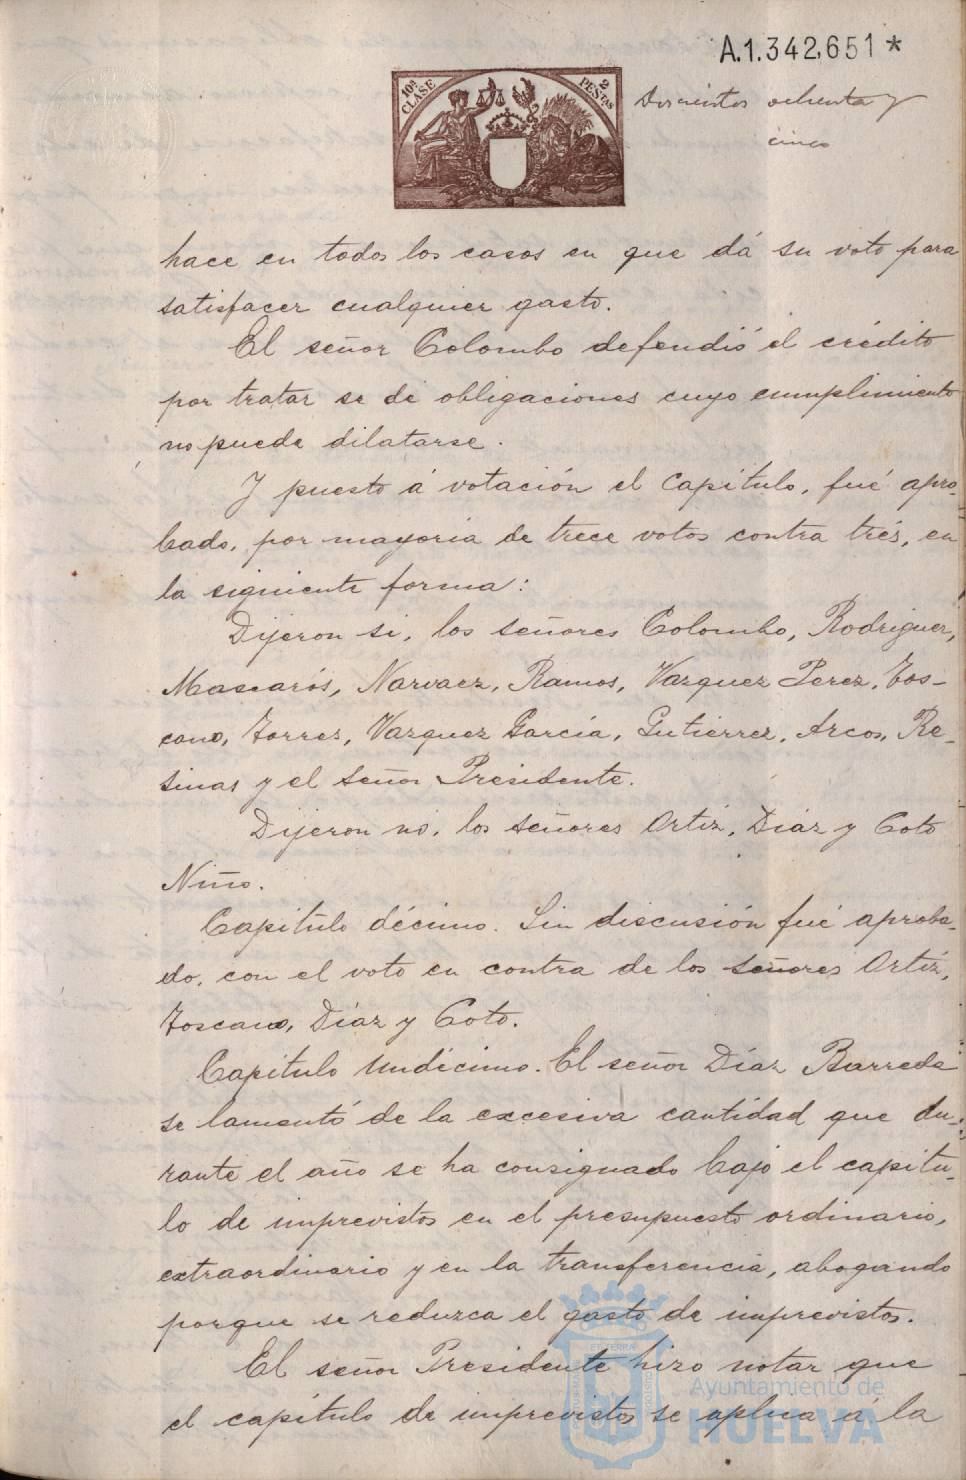 A.1.342,651 *
10ª CLASE
2 PESTAS
Doscientos ochenta y
cinco
hace en todos los casos en que dá su voto para
satisfacer cualquier gasto.
El señor Colombo defendió el crédito
por tratar se de obligaciones cuyo cumplimiento
no puede dilatarse.
Y puesto á votación el Capítulo, fué apro-
bado, por mayoría de trece votos contra trés, en
la siguiente forma:
Dijeron si, los señores Colombo, Rodriguez,
Mascarós, Narvaez, Ramos, Vazquez Perez, Tos-
cano, Torres, Vazquez García, Gutierrez, Arcos, Re-
sinas y el señor Presidente.
Dijeron no, los señores Ortiz, Díaz y Coto
Niño.
Capítulo décimo. Sin discusión fué aproba-
do, con el voto en contra de los señores Ortíz,
Toscano, Díaz y Coto.
Capitulo Undécimo. El señor Díaz Barreda
se lamentó de la excesiva cantidad que du-
rante el año se ha consignado bajo el capitu-
lo de imprevistos en el presupuesto ordinario,
extraordinario y en la transferencia, abogando
porque se reduzca el gasto de imprevistos.
El señor Presidente hizo notar que
el capítulo de imprevistos se aplica á la
Ayuntamiento de
HUELVA